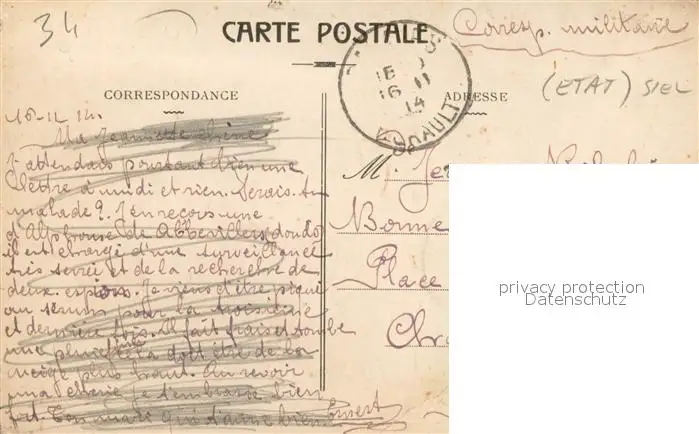 34
CARTE POSTALE
Corresp. militaire
(ETAT) SIEL
CORRESPONDANCE
ADRESSE
16 11 14
HÉRAULT
16-11 14.
Ma Jeannette chérie
J'attendais pourtant bien une
lettre à midi et rien. Serais-tu
malade ? J'en reçois une
d'Alphonse de Abbevillers dou do
il est chargé d'une surveillance
très serrée et de la recherche de
deux espions. Je viens d'être piqué
au sérum pour la troisième
et dernière fois. Il fait frais et tombe
une pluie fine la doit être de la
neige plus haut. Au revoir
ma chérie je t'embrasse bien
fort. Ton mari qui t'aime bien Ernest
M.
Bonne
Place
privacy protection
Datenschutz